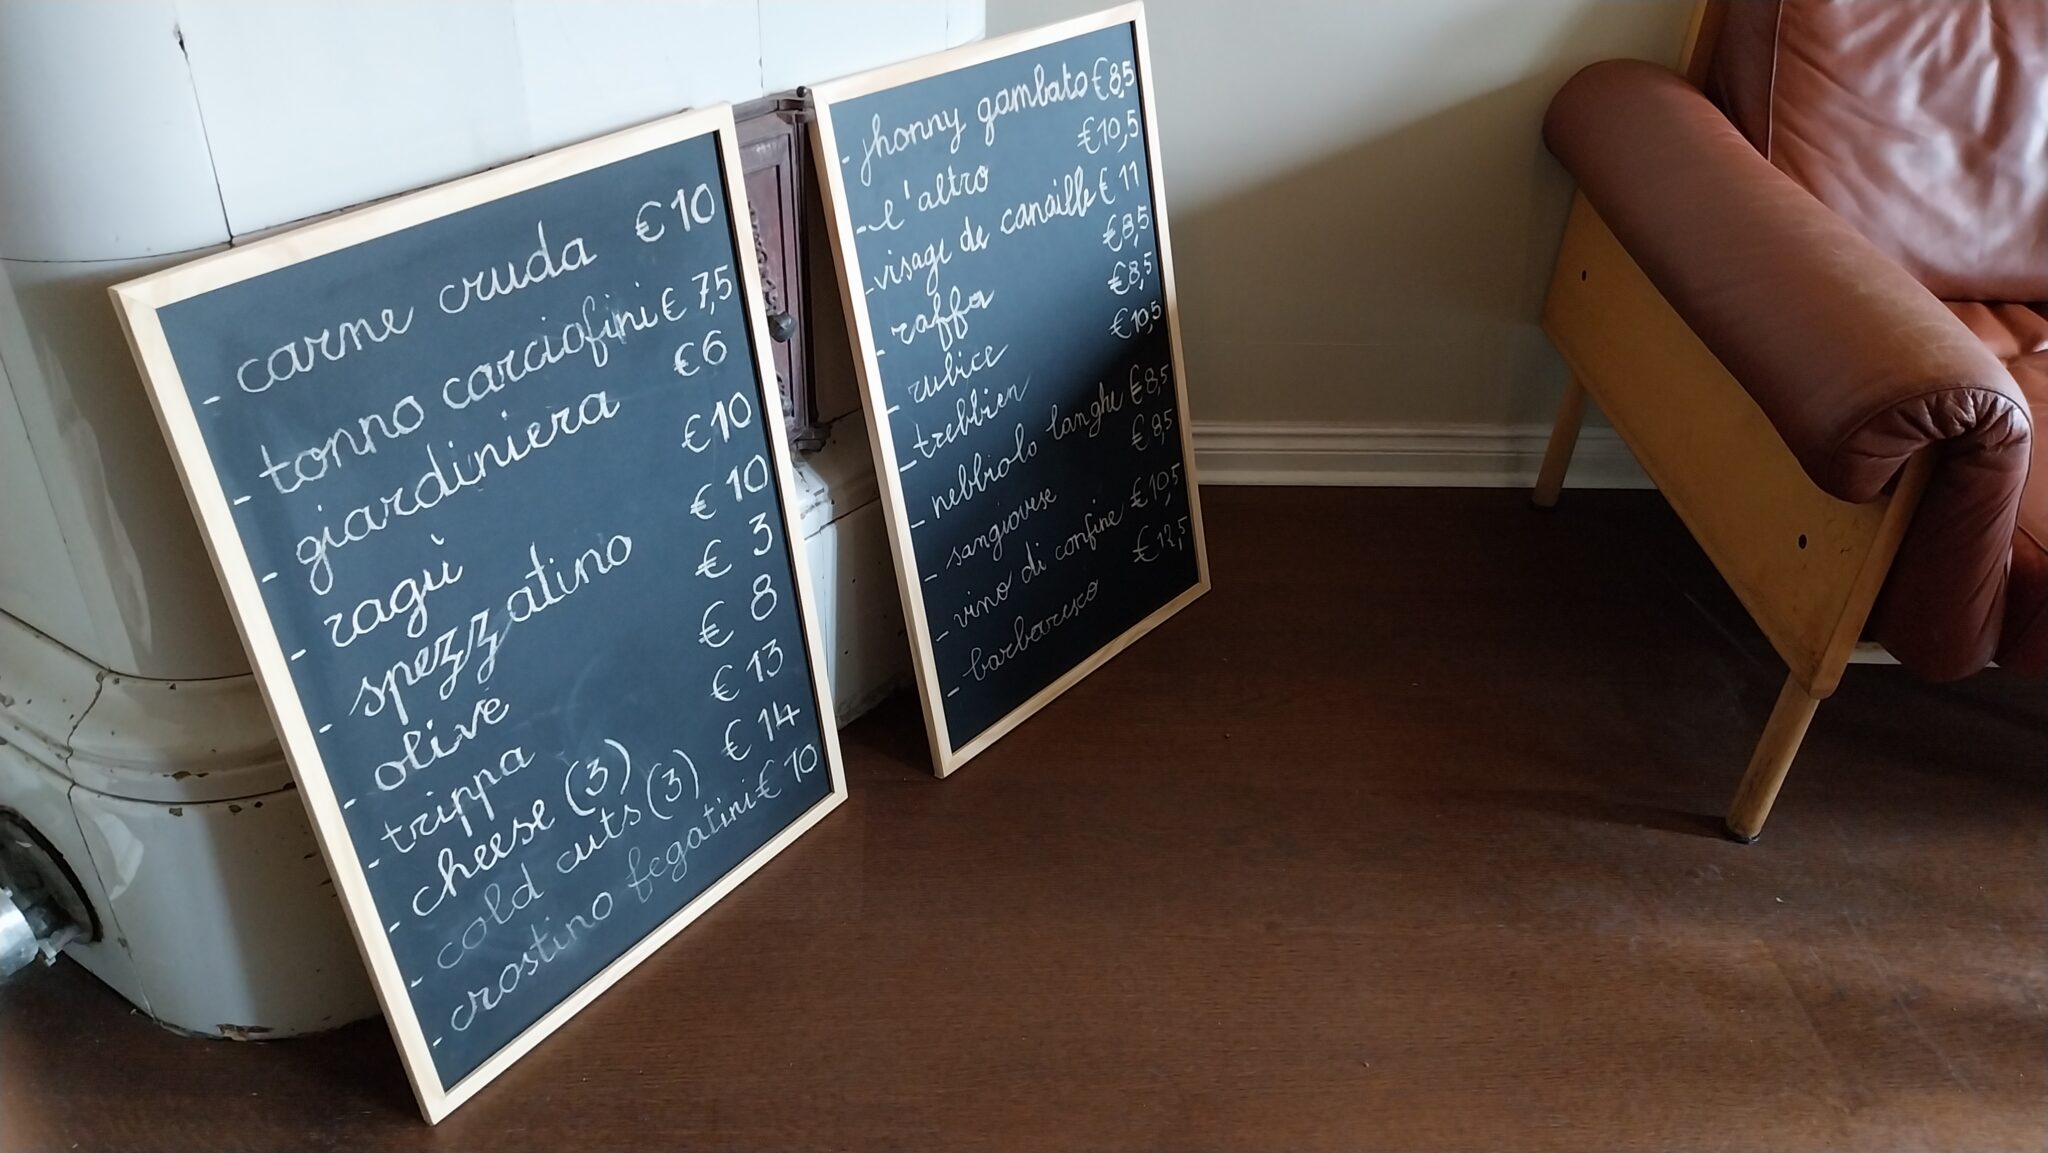 - carne cruda €10
- tonno carciofini € 7,5
- giardiniera €6
- ragù €10
- spezzatino € 10
- olive € 3
- trippa € 8
- cheese (3) € 13
- cold cuts (3) € 14
- crostino fegatini € 10
- jhonny gambato €8,5
- l'altro €10,5
- visage de canaille € 11
- raffa €8,5
- rubice €8,5
- trebbien €10,5
- nebbiolo langhe €8,5
- sangiovese €8,5
- vino di confine €10,5
- barbaresco €12,5